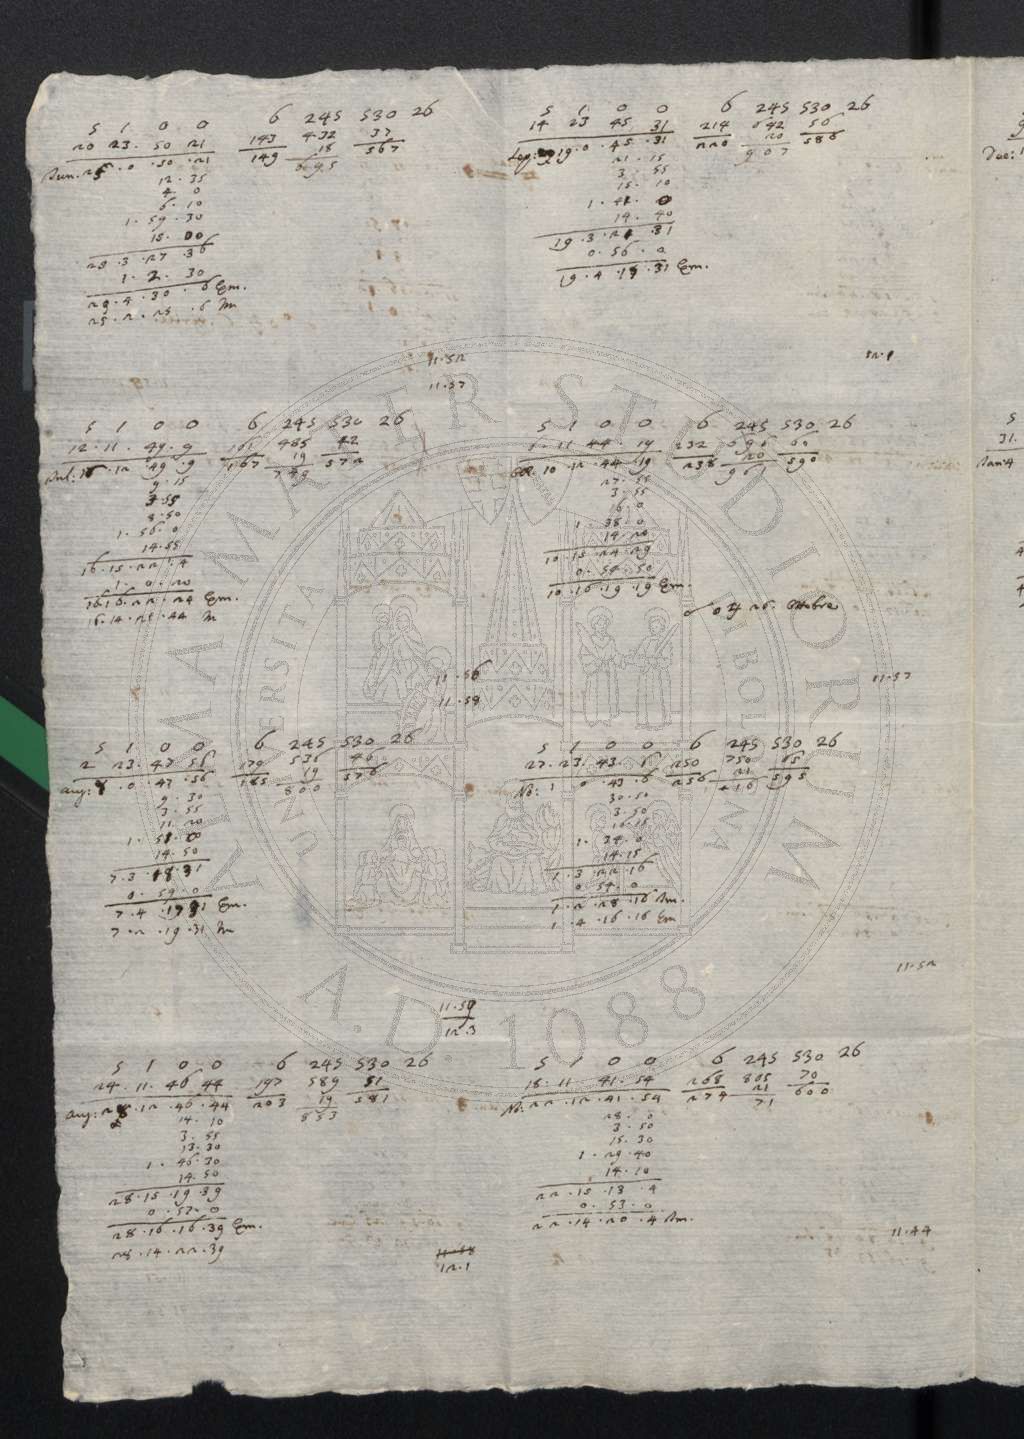 5 1 0 0 6 245 530 26
20 23. 50 21 143 432 37
Jun: 25 . 0 .50 .21 149 18 567
12. 35 6 95
4. 0
6. 10
1. 59. 30
15. 00
25 .3 .27 .36
1. 2. 30
.4 .30 . 6 Em.
25 . 2 . 25 . 6 M
11.52
11.57
5 1 0 0 6 245 530 26
12. 11. 49. 9 161 485 42
Jul: 16 . 12 49 .9 167 19 572
9. 15 749
3.55
8.50
1. 56. 0
14.55
16. 15. 22. 4
1. 0. 20
16.16. 22. 24 Em.
16. 14. 25. 44 M
11. 56
11. 59
5 1 0 0 6 245 530 26
2 23. 47 56 179 536 46
Aug: 8 .0 .47 .56 185 19 576
9. 30 800
3. 55
11. 20
1. 51. 0
14. 50
7 .3 .18 .31
0. 59. 0
7 . 4 . 17 31 Em.
7 . 2 . 19 .31 M
11.59
12.3
5 1 0 0 6 245 530 26
24. 11. 46 44 197 589 51
Aug: 28 .12 .46 .44 203 19 581
14. 10 853
3. 55
13. 30
1. 46. 30
14. 50
28 .15 .19 .39
0. 57. 0
28 .16 .16. 39 Em.
28 . 14. 22. 39
12.1
5 1 0 0 6 245 530 26
14 23 45 31 214 642 56
Sep: 19. 0 . 45 .31 220 20 586
21. 15 907
3. 55
15. 10
1. 41. 0
14. 40
19 .3 .21 .31
0. 56. 0
19 . 4 . 17 .31 Em.
52.1
5 1 0 0 6 245 530 26
11 44. 19 232 696 60
Oct. 10 .12 .44 .19 238 20 590
27. 55 961
3. 55
16. 0
1. 38. 0
14. 20
10. 15. 24. 29
0. 54. 50
10. 16. 19. 19 Em.
26. Ottobre
11.57
5 1 0 0 6 245 530 26
27. 23. 43. 6 250 750 65
No: 1 0 43 .6 256 21 595
30. 50 16
3. 50
16. 15
1. 34. 0
14. 15
1. 3. 22. 16
0. 54. 0
1. 2. 28. 16 Am.
1. 4. 16. 16 Em
11.52
5 1 0 0 6 245 530 26
18. 11 41. 54 268 805 70
No: 22 .12 .41 .54 274 21 600
28. 0 71
3. 50
15. 30
1. 29. 40
14. 10
22 .15 .13 .4
0. 53. 0
22 . 14. 20 .4 Am.
11.44
Dec: 1
31.
Jan: 4
ALMA MATER STUDIORUM
UNIVERSITA DI BOLOGNA
A.D. 1088